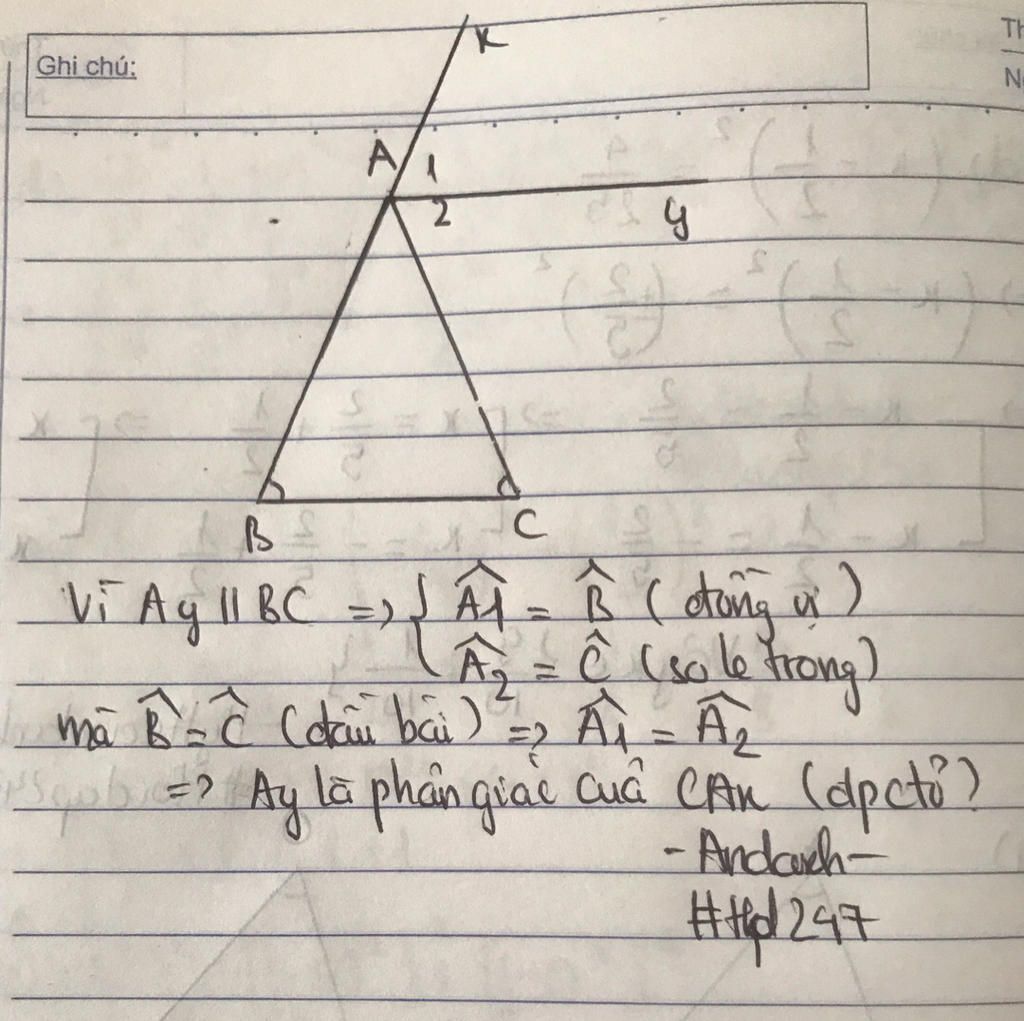 Ghi chú:
Th
K
A 1
2 y
B C
Vì Ay // BC => { Â1 = B̂ (đồng vị)
Â2 = Ĉ (so le trong)
mà B̂ = Ĉ (đầu bài) => Â1 = Â2
=> Ay là phân giác cuả CAK (đpctỏ)
- Andarh -
# Hpd 247